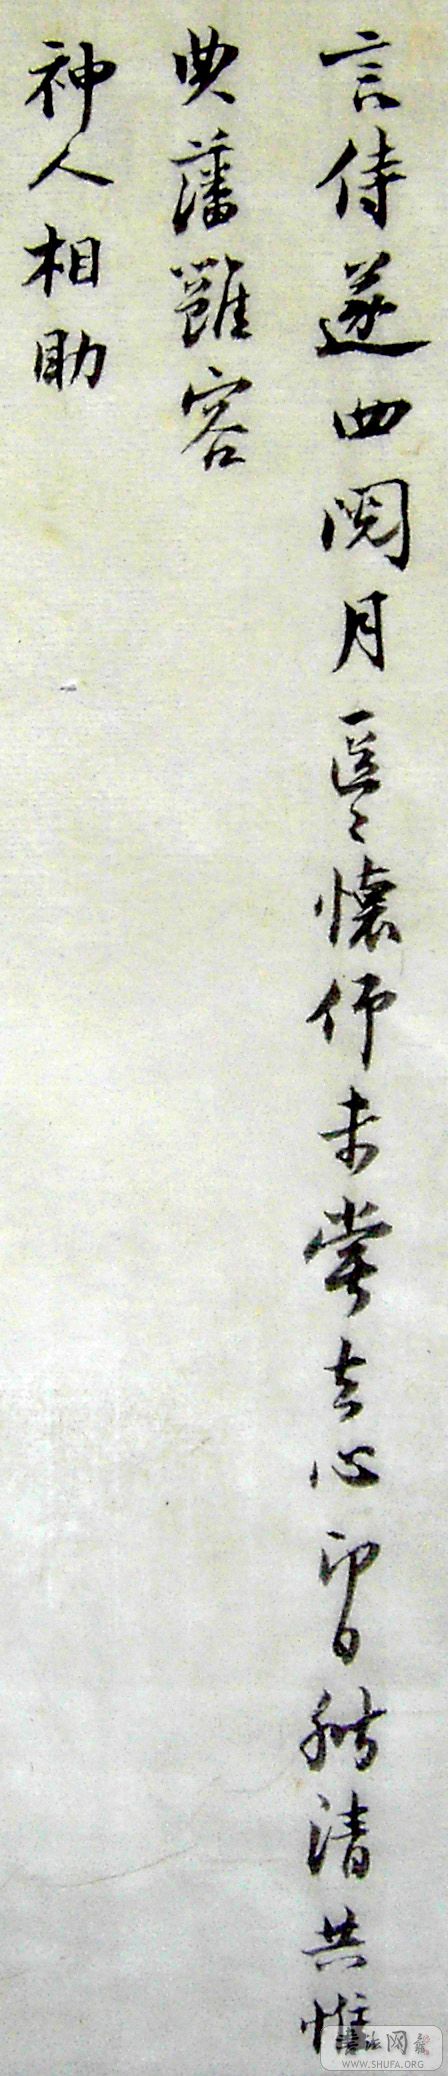 言侍遂四閱月區區懷仰未嘗去心即日秋清共惟
典藩雖容
神人相助
書法网
WWW.SHUFA.ORG